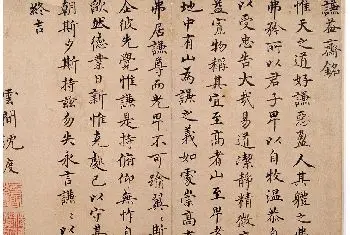 謙益齋銘
惟天之道好謙惡盈人其體之
弗矜所以君子卑以自牧溫恭自
以受忠告大哉易道潔靜精微
益裒物稱其宜至高者山至卑者
地中有山為謙之義如處崇高
弗居謙尊而光卑不可踰
企彼先覺惟謙是持俯仰無怍自
歉然德業日新惟克處己以守其
朝斯夕斯持茲勿失永言謙謙以
終吉
雲間沈度